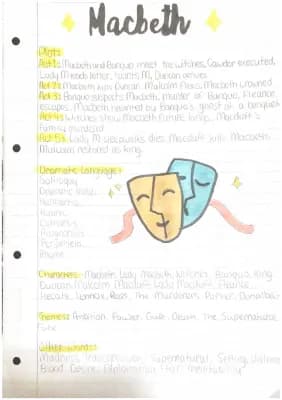 Macbeth
Plot:
Act 1: Macbeth and Banquo meet the witches, Cawdor executed,
Lady M reads letter, taunts M, Duncan arrives
Act 2: Macbeth kills Duncan, Malcolm flees, Macbeth crowned
Act 3: Banquo suspects Macbeth, murder of Banquo, Fleance
escapes, Macbeth haunted by Banquo's ghost at a banquet
Act 4: witches show Macbeth future kings, Macduff's
family murdered
Act 5: Lady M sleepwalks dies, Macduff kills Macbeth
Malcolm restored as king.
Dramatic Language:
Soliloquy
Dramatic
Hamartia
Hubris
Catharsis
Anagnorisis
Peripeteia
Characters: Macbeth, Lady Macbeth, Witches, Banquo, King
Duncan, Malcolm, Macduff, Lady Macduff,
Hecate, Lennox, Ross, The Murderers, Porter, Donalbain
Themes: Ambition, Power, Guilt, Death, The Supernatural
Fate
Other words:
Madness, Supernatural, Setting, Violence
Blood, Desire,